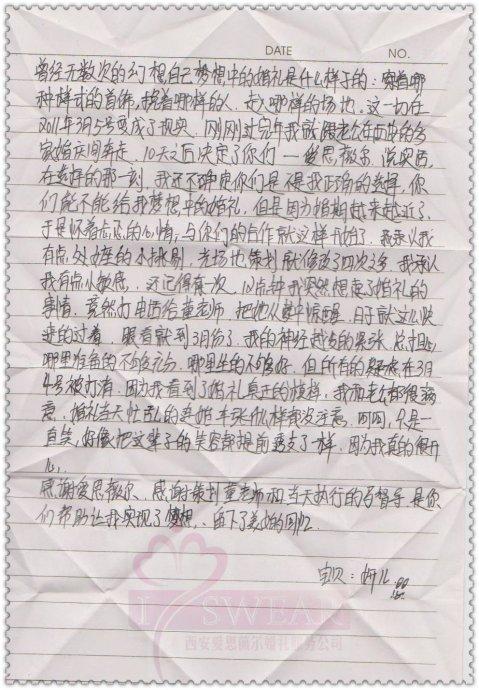 DATE NO.
曾经无数次的幻想自己梦想中的婚礼是什么样子的：穿着哪
种样式的首饰，挽着哪样的人，走入哪样的场地。这一切在
2011年3月5号变成了现实。刚刚过完年我就跟老公在西安的各
家婚庆间奔走，10天之后决定了你们——爱思薇尔。说实话
在选择的那一刻，我还不确定你们是不是我正确的选择，你
们能不能给我梦想中的婚礼，但是因为婚期越来越近了，
于是怀着忐忑的心情，与你们的合作就这样开始了。我承认我
有点处女座的小挑剔，光场地策划就修改了四次之多，我承认
我有点小敏感，还记得有一次，12点钟我突然想起了婚礼的
事情，竟然打电话给董老师，把他从梦中惊醒。日子就这么快
进的过着，眼看就到3月份了，我的神经越发的紧张，总担心
哪里准备的不够充分，哪里生的不够好。但所有的疑虑在3月
4号被打消，因为我看到了婚礼真正的模样，我和老公都很满
意。婚礼当天忙乱的连婚车张什么样都没注意，呵呵，只是一
直笑，好像把这辈子的笑容都提前透支了一样，因为我真的很开
心。
感谢爱思薇尔，感谢策划董老师和当天执行的督导，是你
们帮助让我实现了梦想，留下了美好的回忆。
宝贝：妍儿
I SWEAR
西安爱思薇尔婚礼服务公司